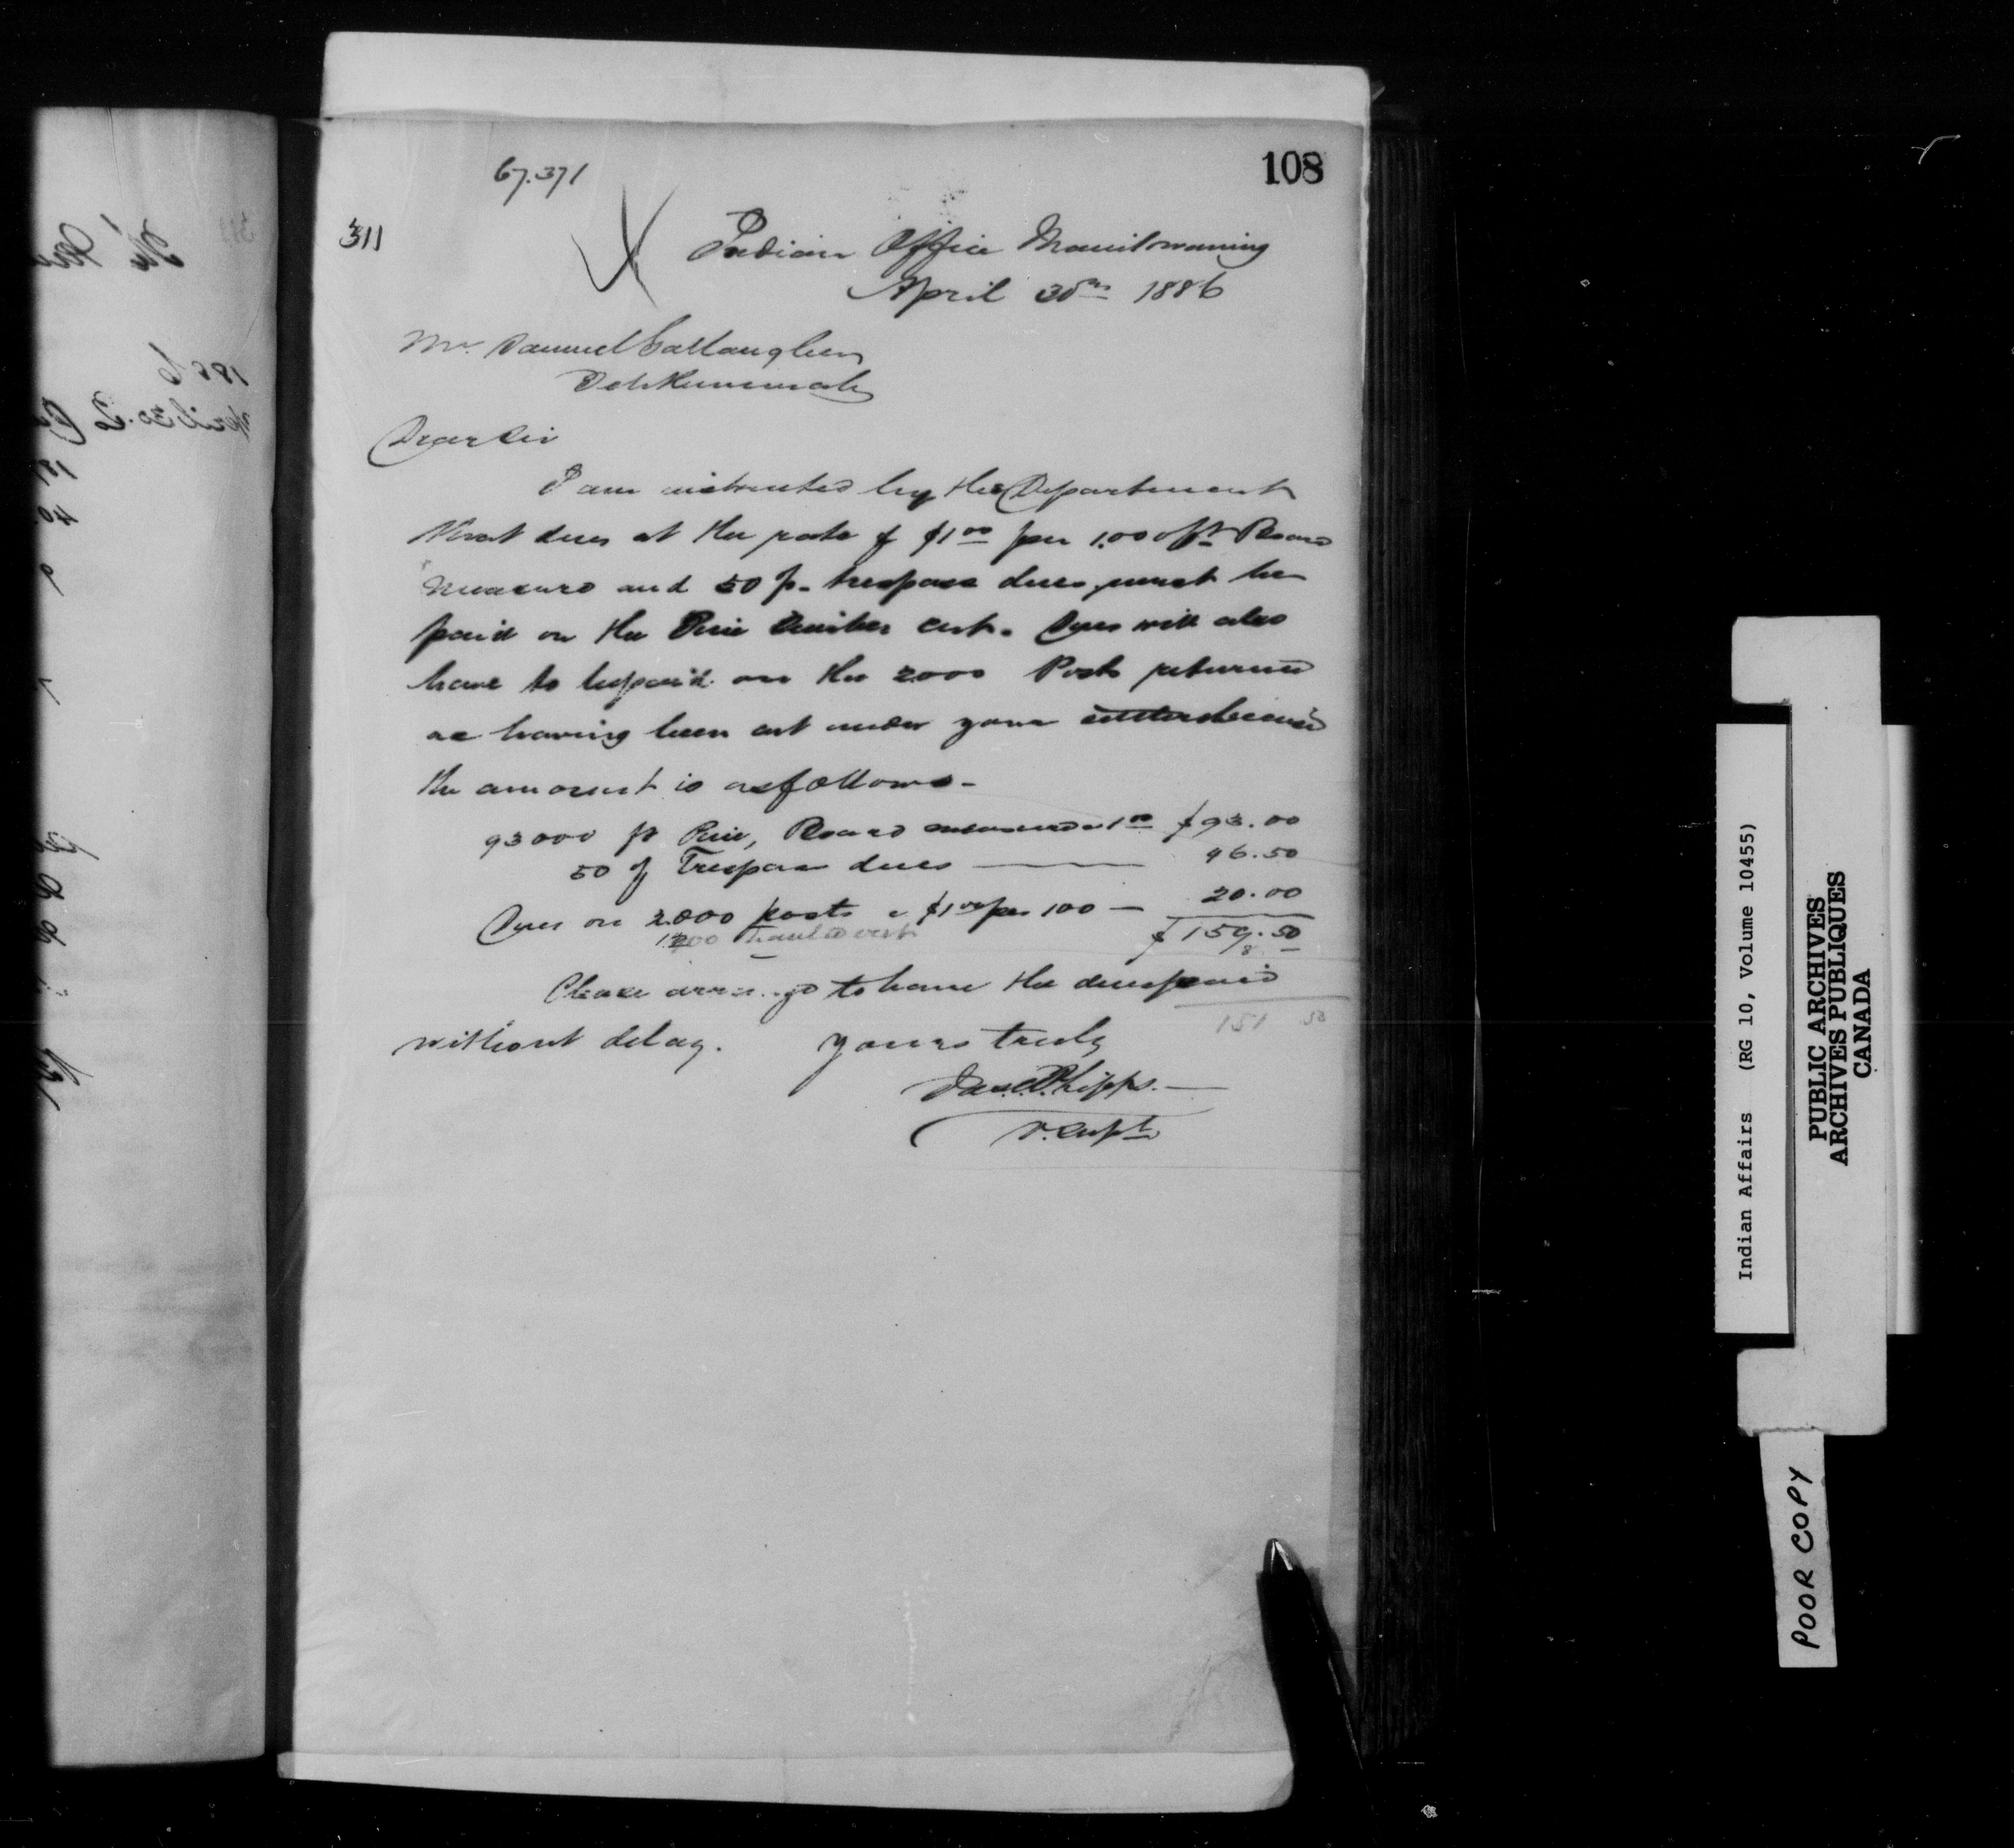 108
67.371
311
Indian Office Manitowaning
April 30th 1886
Mr. Samuel Callaughen
Tehkummah
Dear Sir
I am instructed by the Department
that dues at the rate of $1.00 per 1,000 ft Board
measure and 50 p. trespass dues, must be
paid on the Pine timber cut. Dues will also
have to be paid on the 2000 Posts returned
as having been cut under your
the amount is as follows-
93000 ft Pine, Board measure 1.00 $93.00
50 % Trespass dues — 46.50
Dues on 2.000 posts a $1.00 per 100 — 20.00
1200
$159.50
8
Please arrange to have the dues paid
151 50
without delay. Yours truly
Jas. C. Phipps.—
V. Supt
Indian Affairs (RG 10, Volume 10455)
PUBLIC ARCHIVES
ARCHIVES PUBLIQUES
CANADA
POOR COPY